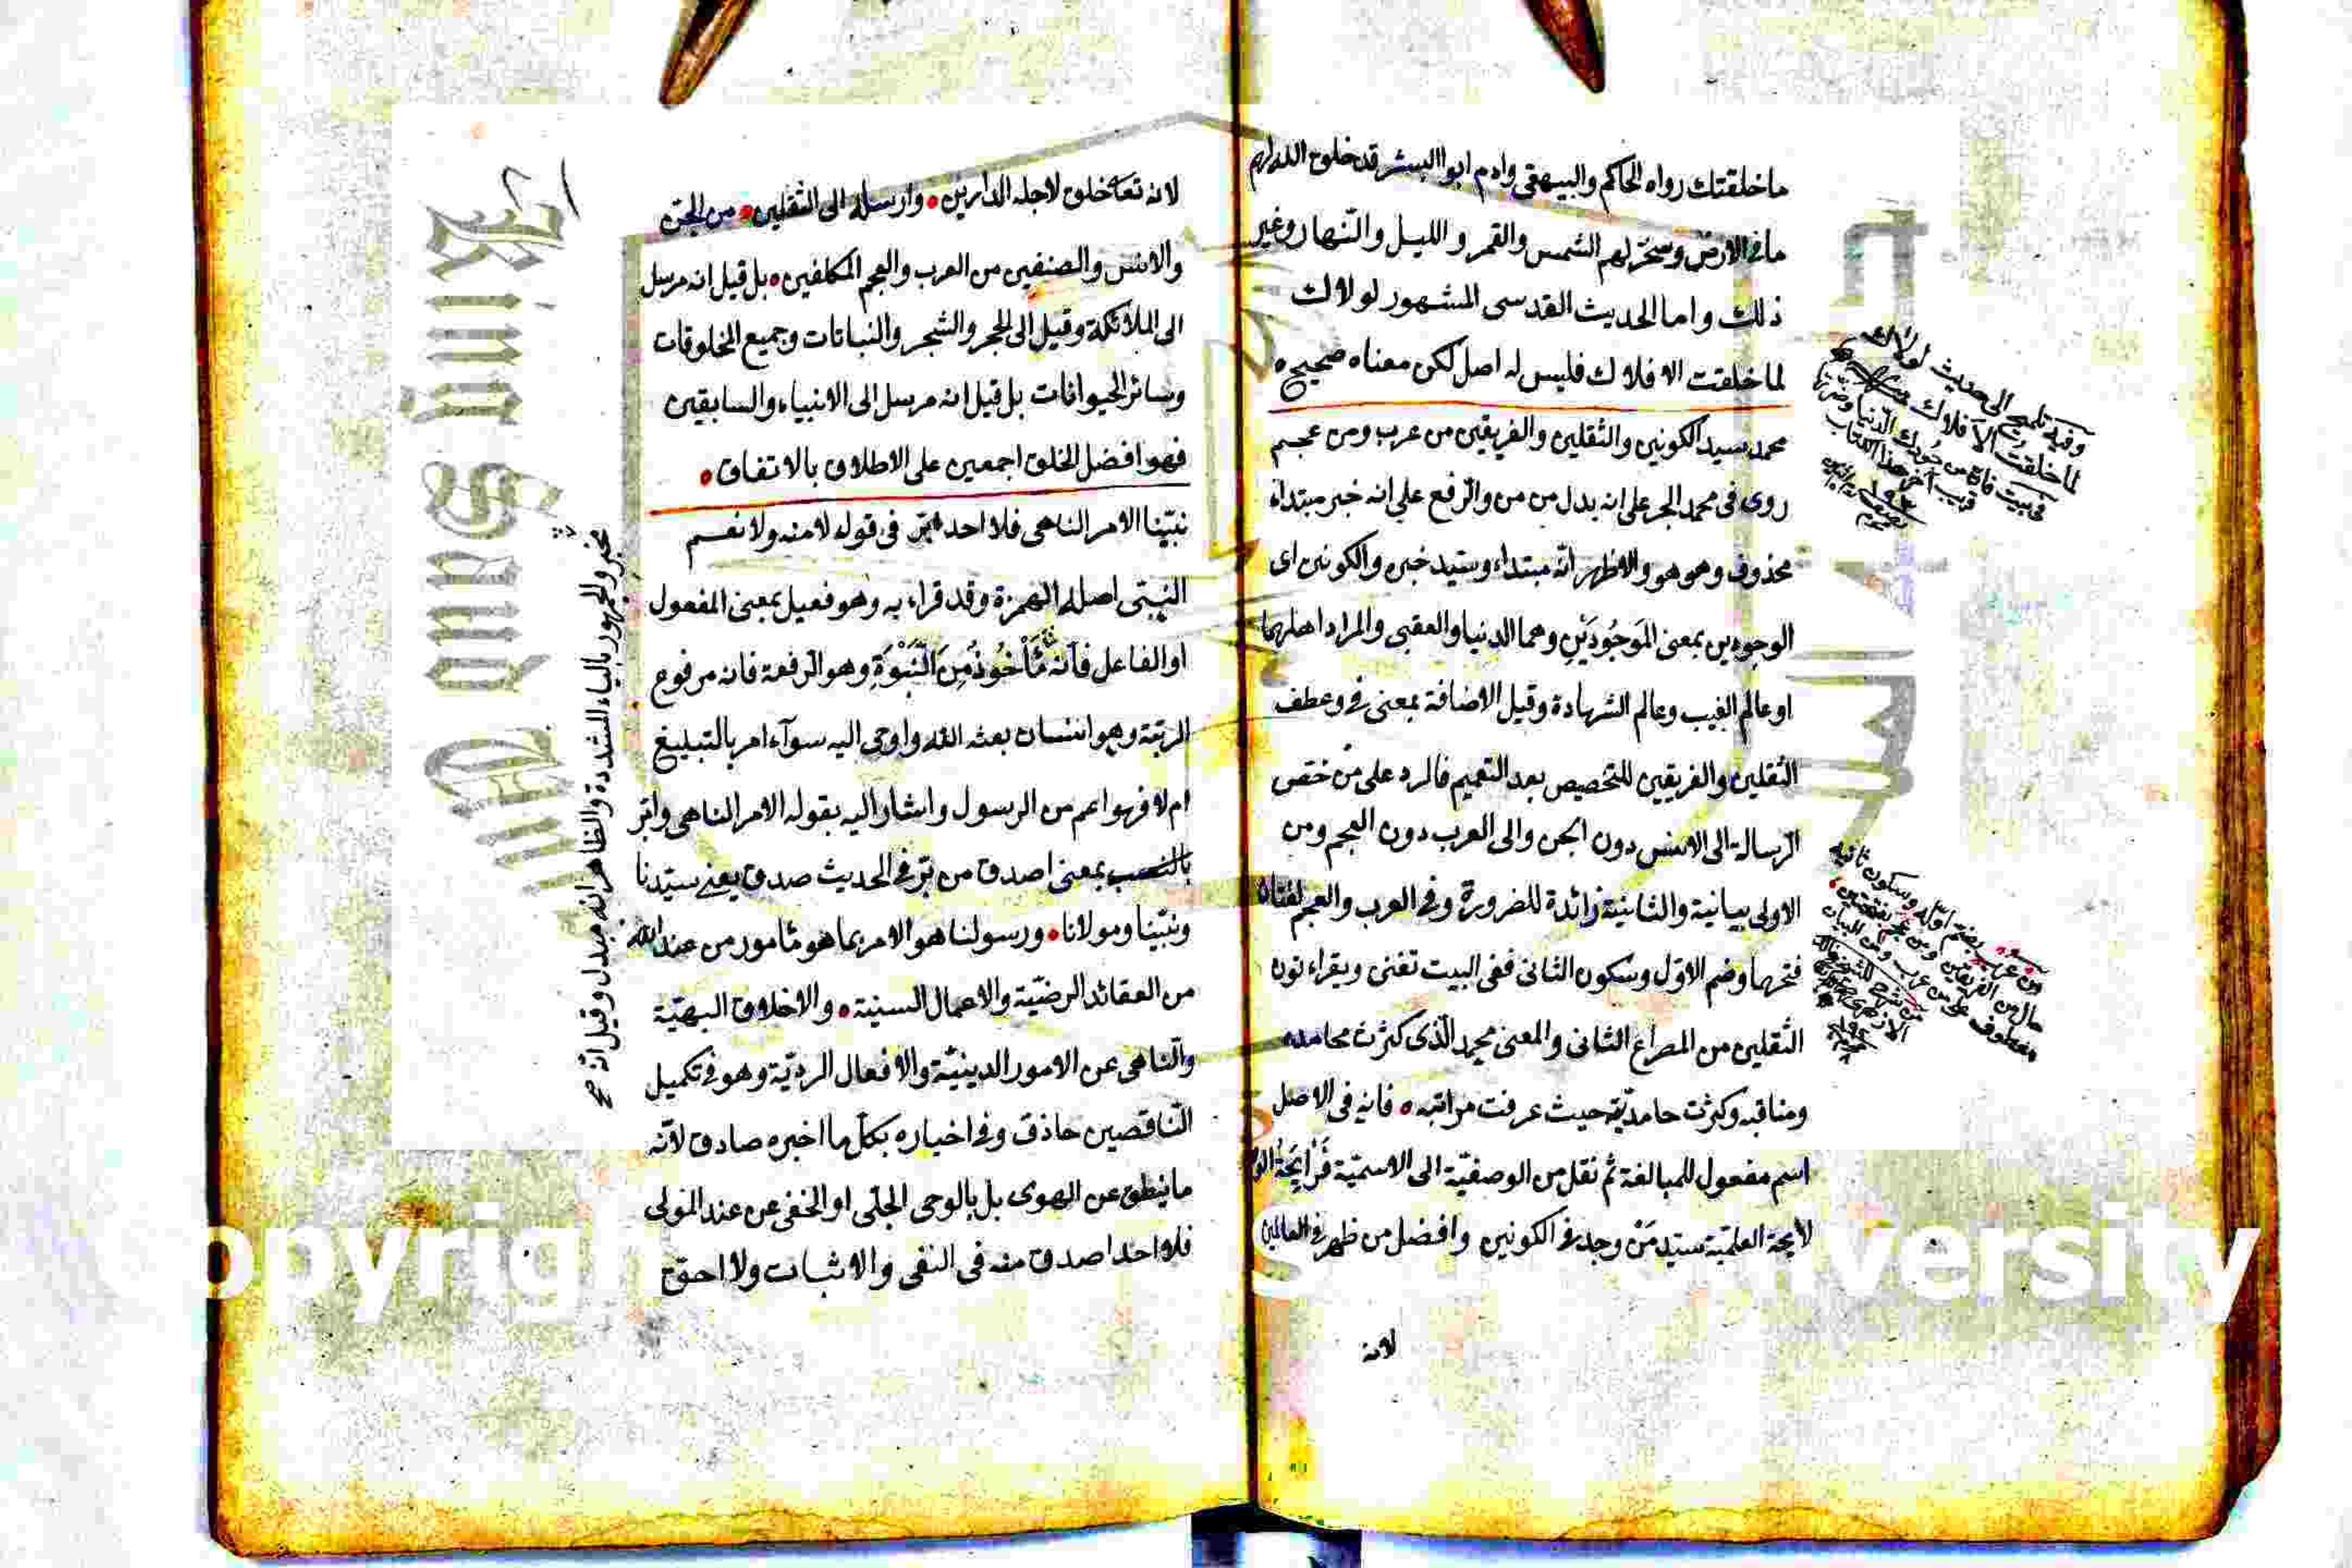 ما خلقتك رواه الحاكم والبيهقى وادم ابو البشر قد خلق الله لهم
ما فى الارض وسخر لهم الشمس والقمر والليل والنهار وغير
ذلك واما الحديث القدسى المشهور لولاك
لما خلقت الافلاك فليس له اصل لكن معناه صحيح
محمد سيد الكونين والثقلين والفريقين من عرب ومن عجم
روى فى محمد الجر على انه بدل من من والرفع على انه خبر مبتداء
محذوف وهو هو والاظهر انه مبتداء وسيد خبره والكونين اى
الوجودين بمعنى المَوجُودَيْنِ وهما الدنيا والعقبى والمراد اهلهما
او عالم الغيب وعالم الشهادة وقيل الاضافة بمعنى فى وعطف
الثقلين والفريقين للتخصيص بعد التعميم فالرد على من خصّ
الرسالة الى الانس دون الجن والى العرب دون العجم ومن
الاولى بيانية والثانية زائدة للضرورة وفى العرب والعجم لغتان
فتحها وضم الاول وسكون الثانى ففى البيت تفنى ويقراء نون
الثقلين من المصراع الثانى والمعنى محمد الذى كثرت محامده
ومناقبه وكثرت حامديّة حيث عرفت مراتبه فانه فى الاصل
اسم مفعول للمبالغة ثم نقل من الوصفيّة الى الاسميّة
لايحة العلمية سيد مَنْ وجد فى الكونين وافضل من ظهر فى العالمين
لانه
وفيه تلميح الى حديث لولاك
لما خلقت الافلاك
فى بيت فان من جودك الدنيا وضرتها
قريب اخر هذا الكتاب
ومن عرب بضم اوله وسكون ثانيه
حال من الفريقين ومن عجم بفتحتين
معطوف على من عرب ومن للبيان
لانه تعا خلق لاجله الدارين وارسله الى الثقلين من الجن
والانس والصنفين من العرب والعجم المكلفين بل قيل انه مرسل
الى الملائكة وقيل الى الحجر والشجر والنباتات وجميع المخلوقات
وسائر الحيوانات بل قيل انه مرسل الى الانبياء والسابقين
فهو افضل الخلق اجمعين على الاطلاق بالاتفاق
نبيّنا الامر الناهى فلا احد ابرّ فى قوله لا منه ولا نعم
النبى اصله الهمزة وقد قراء به وهو فعيل بمعنى المفعول
او الفاعل فانه مَأْخُوذٌ مِنَ النَّبْوَةِ وهو الرفعة فانه مرفوع
الرتبة وهو انسان بعثه الله واوحى اليه سوآء امر بالتبليغ
ام لا فهو اعم من الرسول واشار اليه بقوله الامر الناهى وابر
بالنصب بمعنى اصدق من برّ فى الحديث صدق يعنى سيّدنا
ونبيّنا ومولانا ورسولنا هو الامر بما هو مأمور من عند الله
من العقائد الرضيّة والاعمال السنية والاخلاق البهيّة
والناهى عن الامور الدينيّة والافعال الرديّة وهو فى تكميل
الناقصين حاذق وفى اخباره بكل ما اخبره صادق لانّه
ما ينطق عن الهوى بل بالوحى الجلى او الخفى عن عند المولى
فلا احد اصدق منه فى النفى والاثبات ولا احق
مخبر والجمهور بالياء المشددة والظاهر انه مبدل وقيل انه
King Saud
Copyright
University